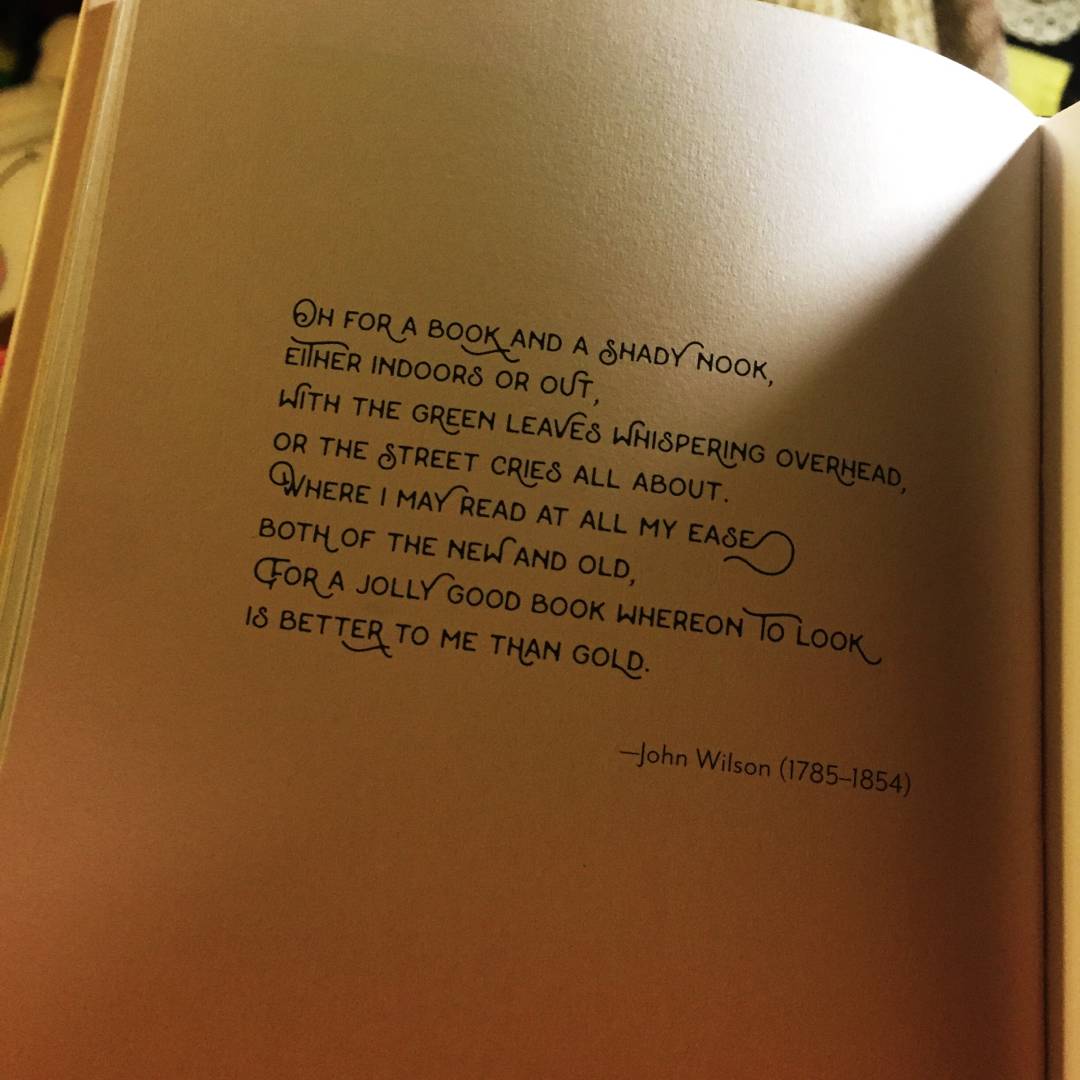 OH FOR A BOOK AND A SHADY NOOK,
EITHER INDOORS OR OUT,
WITH THE GREEN LEAVES WHISPERING OVERHEAD,
OR THE STREET CRIES ALL ABOUT.
WHERE I MAY READ AT ALL MY EASE
BOTH OF THE NEW AND OLD,
FOR A JOLLY GOOD BOOK WHEREON TO LOOK
IS BETTER TO ME THAN GOLD.
—John Wilson (1785–1854)